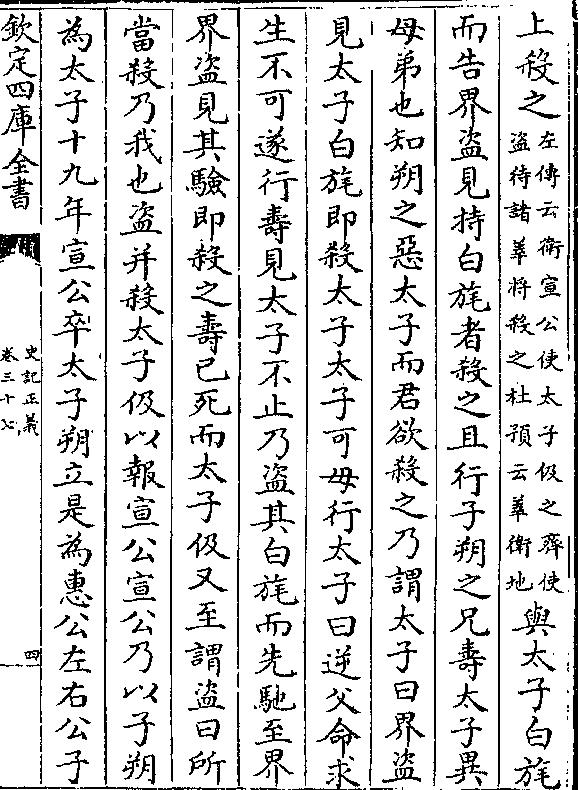 上殺之左傳云衛宣公使太子伋之齊使盜待諸莘將殺之杜預云莘衛地與太子白旄
而告界盜見持白旄者殺之且行子朔之兄壽太子異
母弟也知朔之惡太子而君欲殺之乃謂太子曰界盜
見太子白旄即殺太子太子可毋行太子曰逆父命求
生不可遂行壽見太子不止乃盜其白旄而先馳至界
界盜見其驗即殺之壽已死而太子伋又至謂盜曰所
當殺乃我也盜并殺太子伋以報宣公宣公乃以子朔
為太子十九年宣公卒太子朔立是為惠公左右公子
欽定四庫全書
史記正義
卷三十七
四